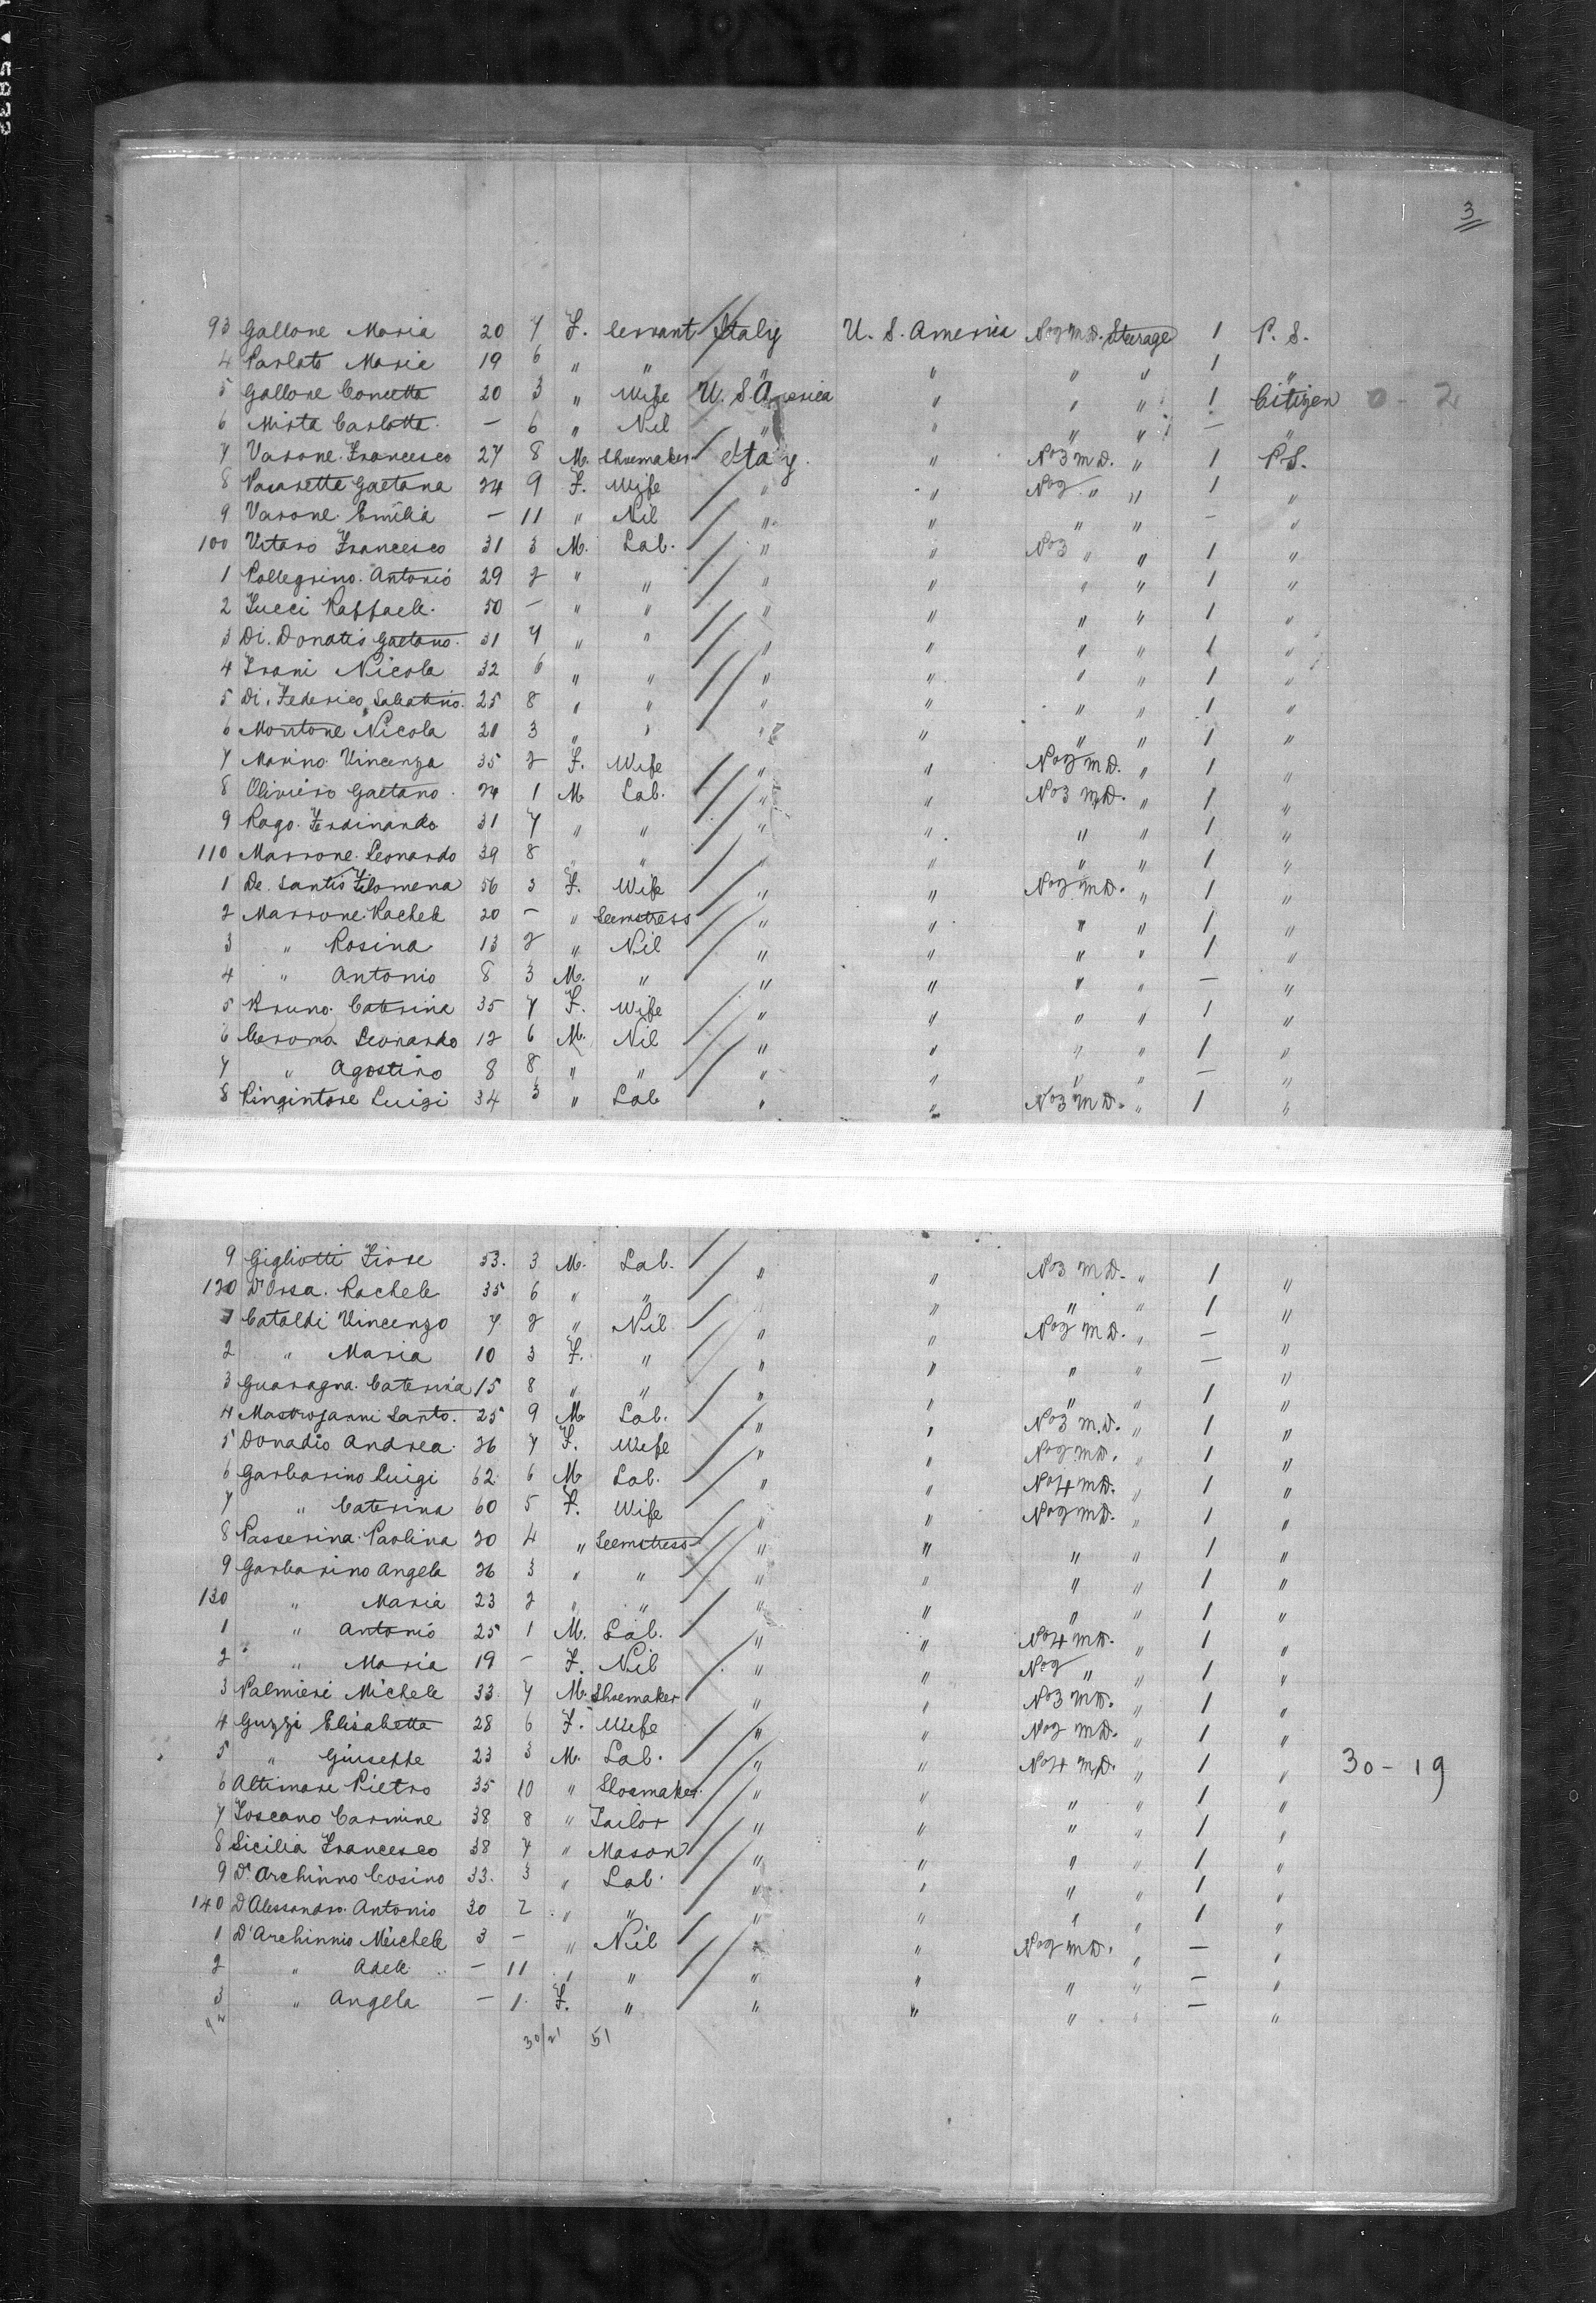 3
93 Gallone Maria 20 7 F. servant Italy U. S. America No 2 M.D. Steerage 1 P. S.
4 Parlato Maria 19 6 " " " " " " 1 "
5 Gallone Concetta 20 3 " Wife U. S America " " " 1 Citizen 0 - 2
6 Mista Carlotta - 6 " Nil " " " " - "
7 Varone Francesco 27 8 M. Shoemaker Italy " No 3 M D. " 1 P.S.
8 Pasaretta Gaetana 24 9 F. Wife " " No 2 " " 1 "
9 Varone Emilia - 11 " Nil " " " " - "
100 Vitaro Francesco 31 3 M. Lab. " " No 3 " " 1 "
1 Pollegrino Antonio 29 2 " " " " " " 1 "
2 Tucci Raffaele 50 - " " " " " " 1 "
3 Di. Donatis Gaetano 31 7 " " " " " " 1 "
4 Trani Nicola 32 6 " " " " " " 1 "
5 Di. Federico Sabatino 25 8 " " " " " " 1 "
6 Montone Nicola 21 3 " " " " " " 1 "
7 Marino Vincenza 35 2 F. Wife " " No 2 M D. " 1 "
8 Oliviero Gaetano 24 1 M Lab. " " No 3 M.D. " 1 "
9 Rago Ferdinando 31 7 " " " " " " 1 "
110 Marrone Leonardo 39 8 " " " " " " 1 "
1 De. Santis Filomena 56 3 F. Wife " " No 2 M.D. " 1 "
2 Marrone Rachele 20 - " Seemstress " " " " 1 "
3 " Rosina 13 2 " Nil " " " " 1 "
4 " Antonio 8 3 M. " " " " " - "
5 Bruno Caterina 35 7 F. Wife " " " " 1 "
6 Ceroma Leonardo 12 6 M. Nil " " " " 1 "
7 " Agostino 8 8 " " " " " " - "
8 Pingintore Luigi 34 3 " Lab " " No 3 M D. " 1 "
9 Gigliotti Fiore 53. 3 M. Lab. " " No 3 M D. " 1 "
120 D'Orsa. Rachele 35 6 " " " " " " 1 "
1 Cataldi Vincenzo 7 2 " Nil " " No 2 M D. " - "
2 " Maria 10 3 F. " " " " " - "
3 Guaragna Caterina 15 8 " " " " " " 1 "
4 Mastrojanni Santo. 25 9 M Lab. " " No 3 M.D. " 1 "
5 Donadio Andrea 26 7 F. Wife " " No 2 M D. " 1 "
6 Garbarino Luigi 62 6 M Lab. " " No 4 M D. " 1 "
7 " Caterina 60 5 F. Wife " " No 2 M D. " 1 "
8 Passerina Paolina 20 4 " Seemstress " " " " 1 "
9 Garbarino Angela 26 3 " " " " " " 1 "
130 " Maria 23 2 " " " " " " 1 "
1 " Antonio 25 1 M. Lab. " " No 4 M D. " 1 "
2 " Maria 19 - F. Nil " " No 2 " " 1 "
3 Palmieri Michele 33 7 M. Shoemaker " " No 3 M D. " 1 "
4 Guzzi Elisabetta 28 6 F. Wife " " No 2 M D. " 1 "
5 " Giuseppe 23 3 M. Lab. " " No 4 M.D. " 1 " 30 - 19
6 Altimare Pietro 35 10 " Shoemaker " " " " 1 "
7 Toscano Carmine 38 8 " Tailor " " " " 1 "
8 Sicilia Francesco 38 7 " Mason " " " " 1 "
9 D'Archinno Cosino 33. 3 " Lab. " " " " 1 "
140 D'Alessandro Antonio 30 2 " " " " " " 1 "
1 D'Archinnio Michele 3 - " Nil " " No 2 M D. " - "
2 " Adele - 11 " " " " " " - "
3 " Angela - 1. F. " " " " " - "
30/21 51